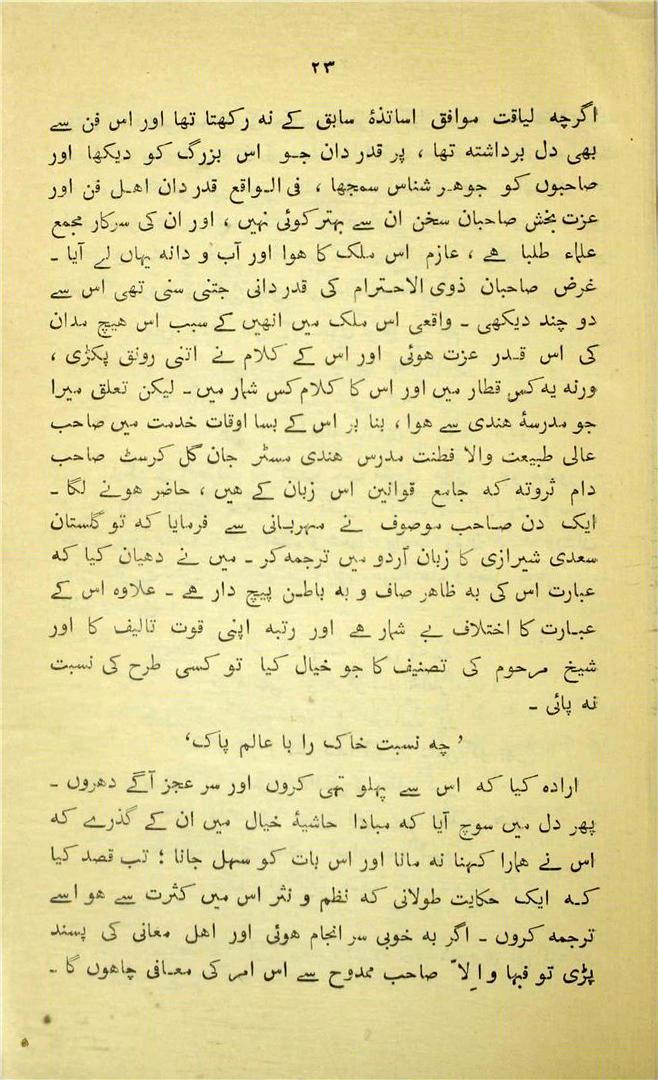 ۲۳
اگرچہ لیاقت موافق اساتذۂ سابق کے نہ رکھتا تھا اور اس فن سے
بھی دل برداشتہ تھا ، پر قدر دان جو اس بزرگ کو دیکھا اور
صاحبوں کو جوہر شناس سمجھا ، فی الواقع قدر دان اہل فن اور
عزت بخش صاحبان سخن ان سے بہتر کوئی نہیں ، اور ان کی سرکار مجمع
علماء طلبا ہے ، عازم اس ملک کا ہوا اور آب و دانہ یہاں لے آیا ۔
غرض صاحبان ذوی الاحترام کی قدر دانی جتنی سنی تھی اس سے
دو چند دیکھی ۔ واقعی اس ملک میں انھیں کے سبب اس ہیچ مدان
کی اس قدر عزت ہوئی اور اس کے کلام نے اتنی رونق پکڑی ،
ورنہ یہ کس قطار میں اور اس کا کلام کس شمار میں ۔ لیکن تعلق میرا
جو مدرسۂ ہندی سے ہوا ، بنا بر اس کے بسا اوقات خدمت میں صاحب
عالی طبیعت والا فطنت مدرس ہندی مسٹر جان گل کرسٹ صاحب
دام ثروتہ کہ جامع قوانین اس زبان کے ہیں ، حاضر ہونے لگا ۔
ایک دن صاحب موصوف نے مہربانی سے فرمایا کہ تو گلستان
سعدی شیرازی کا زبان اُردو میں ترجمہ کر ۔ میں نے دھیان کیا کہ
عبارت اس کی بہ ظاہر صاف و بہ باطن پیچ دار ہے ۔ علاوہ اس کے
عبارت کا اختلاف بے شمار ہے اور رتبہ اپنی قوت تالیف کا اور
شیخ مرحوم کی تصنیف کا جو خیال کیا تو کسی طرح کی نسبت
نہ پائی ۔
’ چہ نسبت خاک را با عالم پاک‘
ارادہ کیا کہ اس سے پہلو تہی کروں اور سر عجز آگے دھروں ۔
پھر دل میں سوچ آیا کہ مبادا حاشیۂ خیال میں ان کے گذرے کہ
اس نے ہمارا کہنا نہ مانا اور اس بات کو سہل جانا ؛ تب قصد کیا
کہ ایک حکایت طولانی کہ نظم و نثر اس میں کثرت سے ہو اسے
ترجمہ کروں ۔ اگر بہ خوبی سر انجام ہوئی اور اہل معانی کی پسند
پڑی تو فبہا و اِلاّ صاحب ممدوح سے اس امر کی معافی چاہوں گا ۔